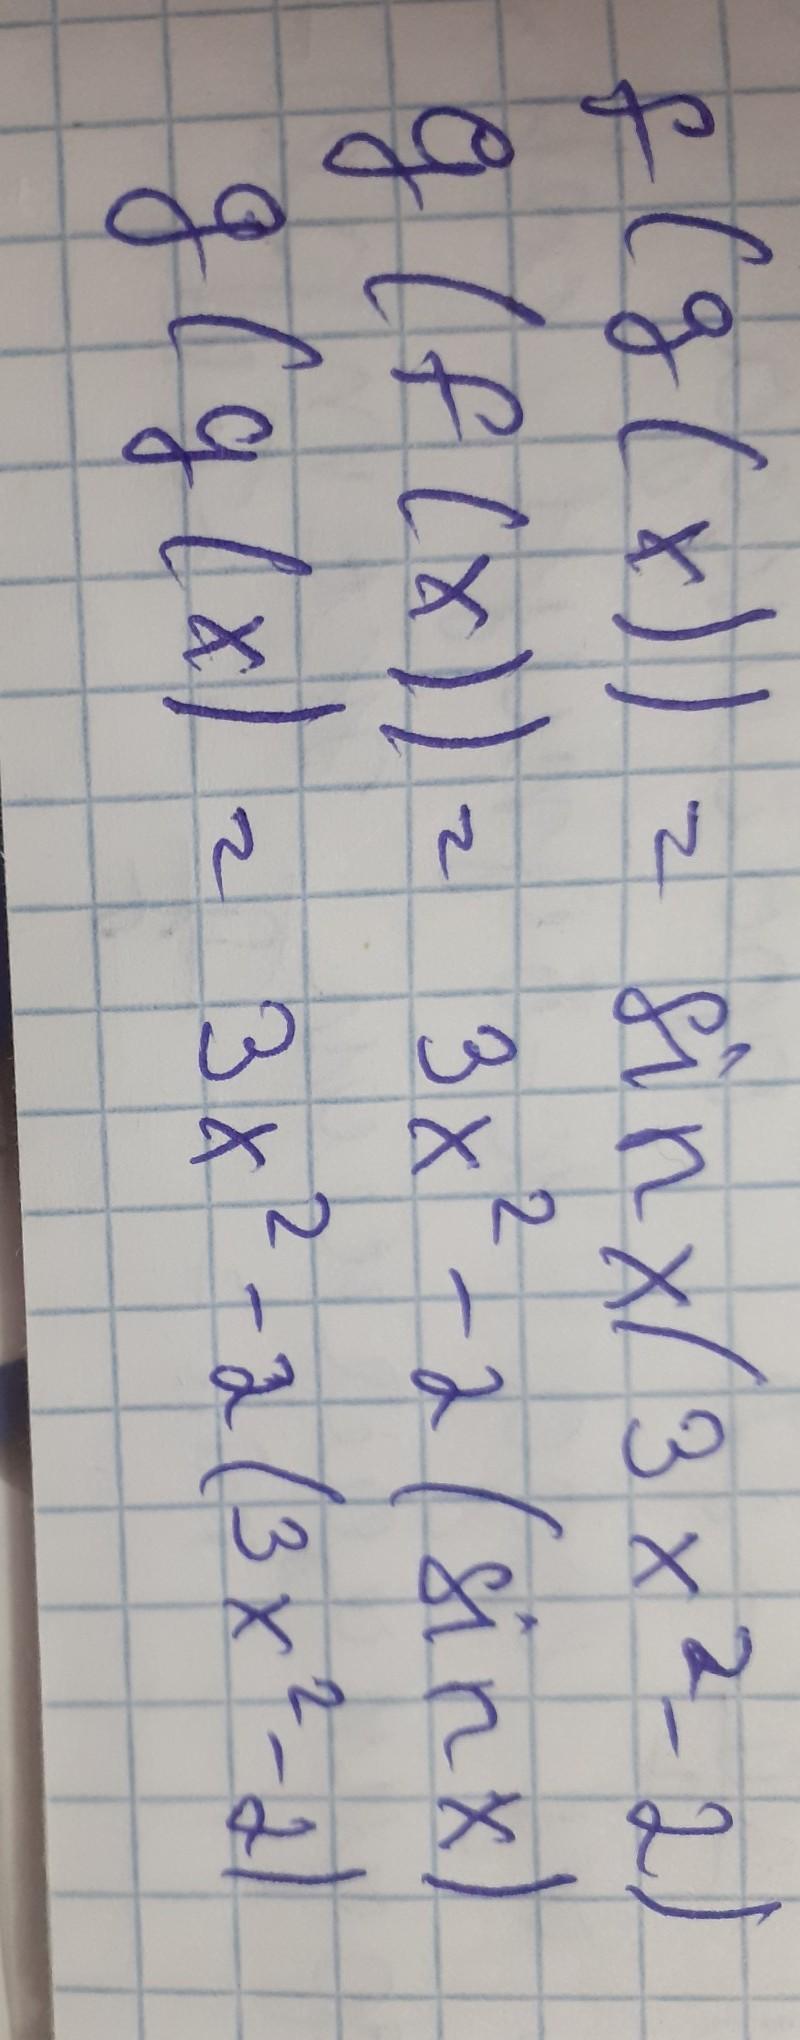 f(g(x)) = sin x(3x²-2)
g(f(x)) = 3x²-2(sin x)
g(g(x) = 3x²-2(3x²-2)